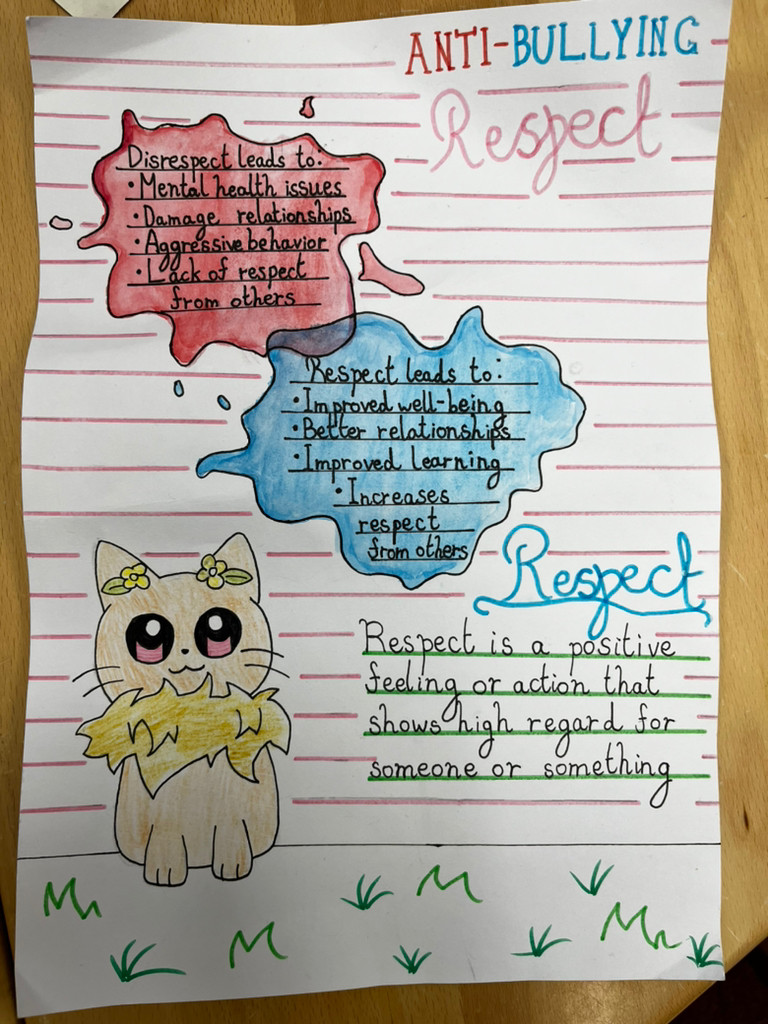 ANTI-BULLYING
Respect
Disrespect leads to:
• Mental health issues
• Damage relationships
• Aggressive behavior
• Lack of respect
from others
Respect leads to:
• Improved well-being
• Better relationships
• Improved learning
• Increases
respect
from others
Respect
Respect is a positive
feeling or action that
shows high regard for
someone or something